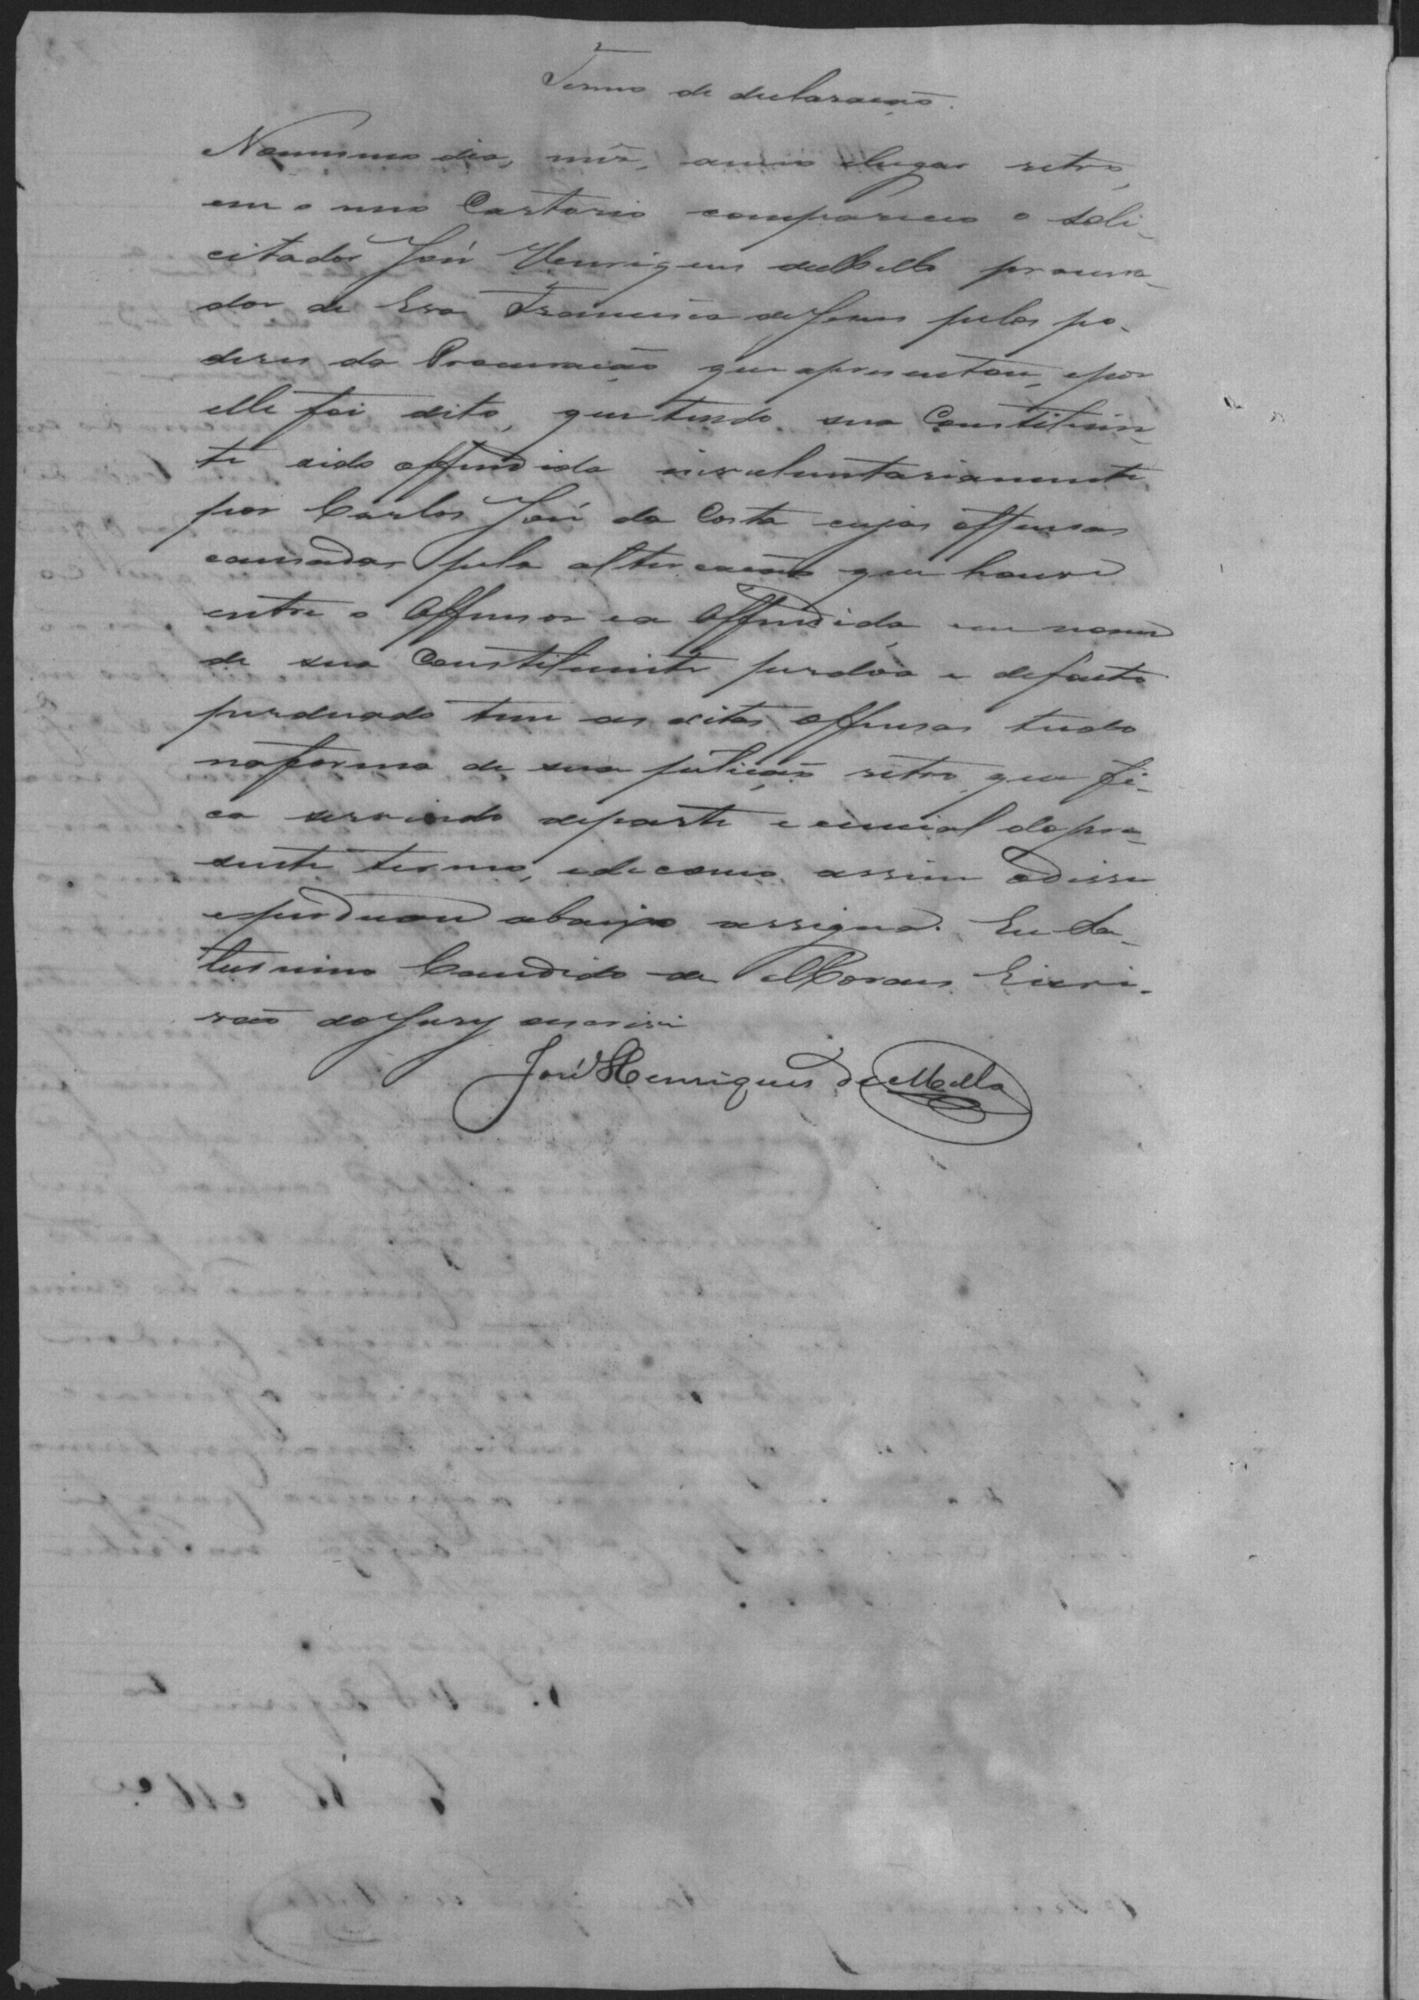 Termo de declaração.
No mesmo dia, mês, anno e lugar retro,
em o meo Cartorio compareceo o soli-
citador José Henriques de Mello procura-
dor de Eva Francisca de Jesus pelos po-
deres da Procuração que apresentou, e por
elle foi dito, que tendo sua Constituin-
te sido offendida involuntariamente
por Carlos José da Costa cujas offensas
causadas pela altercação que houve
entre o Offensor e a Offendida, em nome
de sua Constituinte perdoa e de facto
perdoado tem as ditas offensas tudo
na forma de sua petição retro, que fi-
ca servindo de parte e essencial do pre-
sente termo, e de como assim o disse
e perdoou abaixo assigna. Eu Sa-
turnino Candido de Moraes Escri-
vão do Jury escrevi
José Henriques de Mello